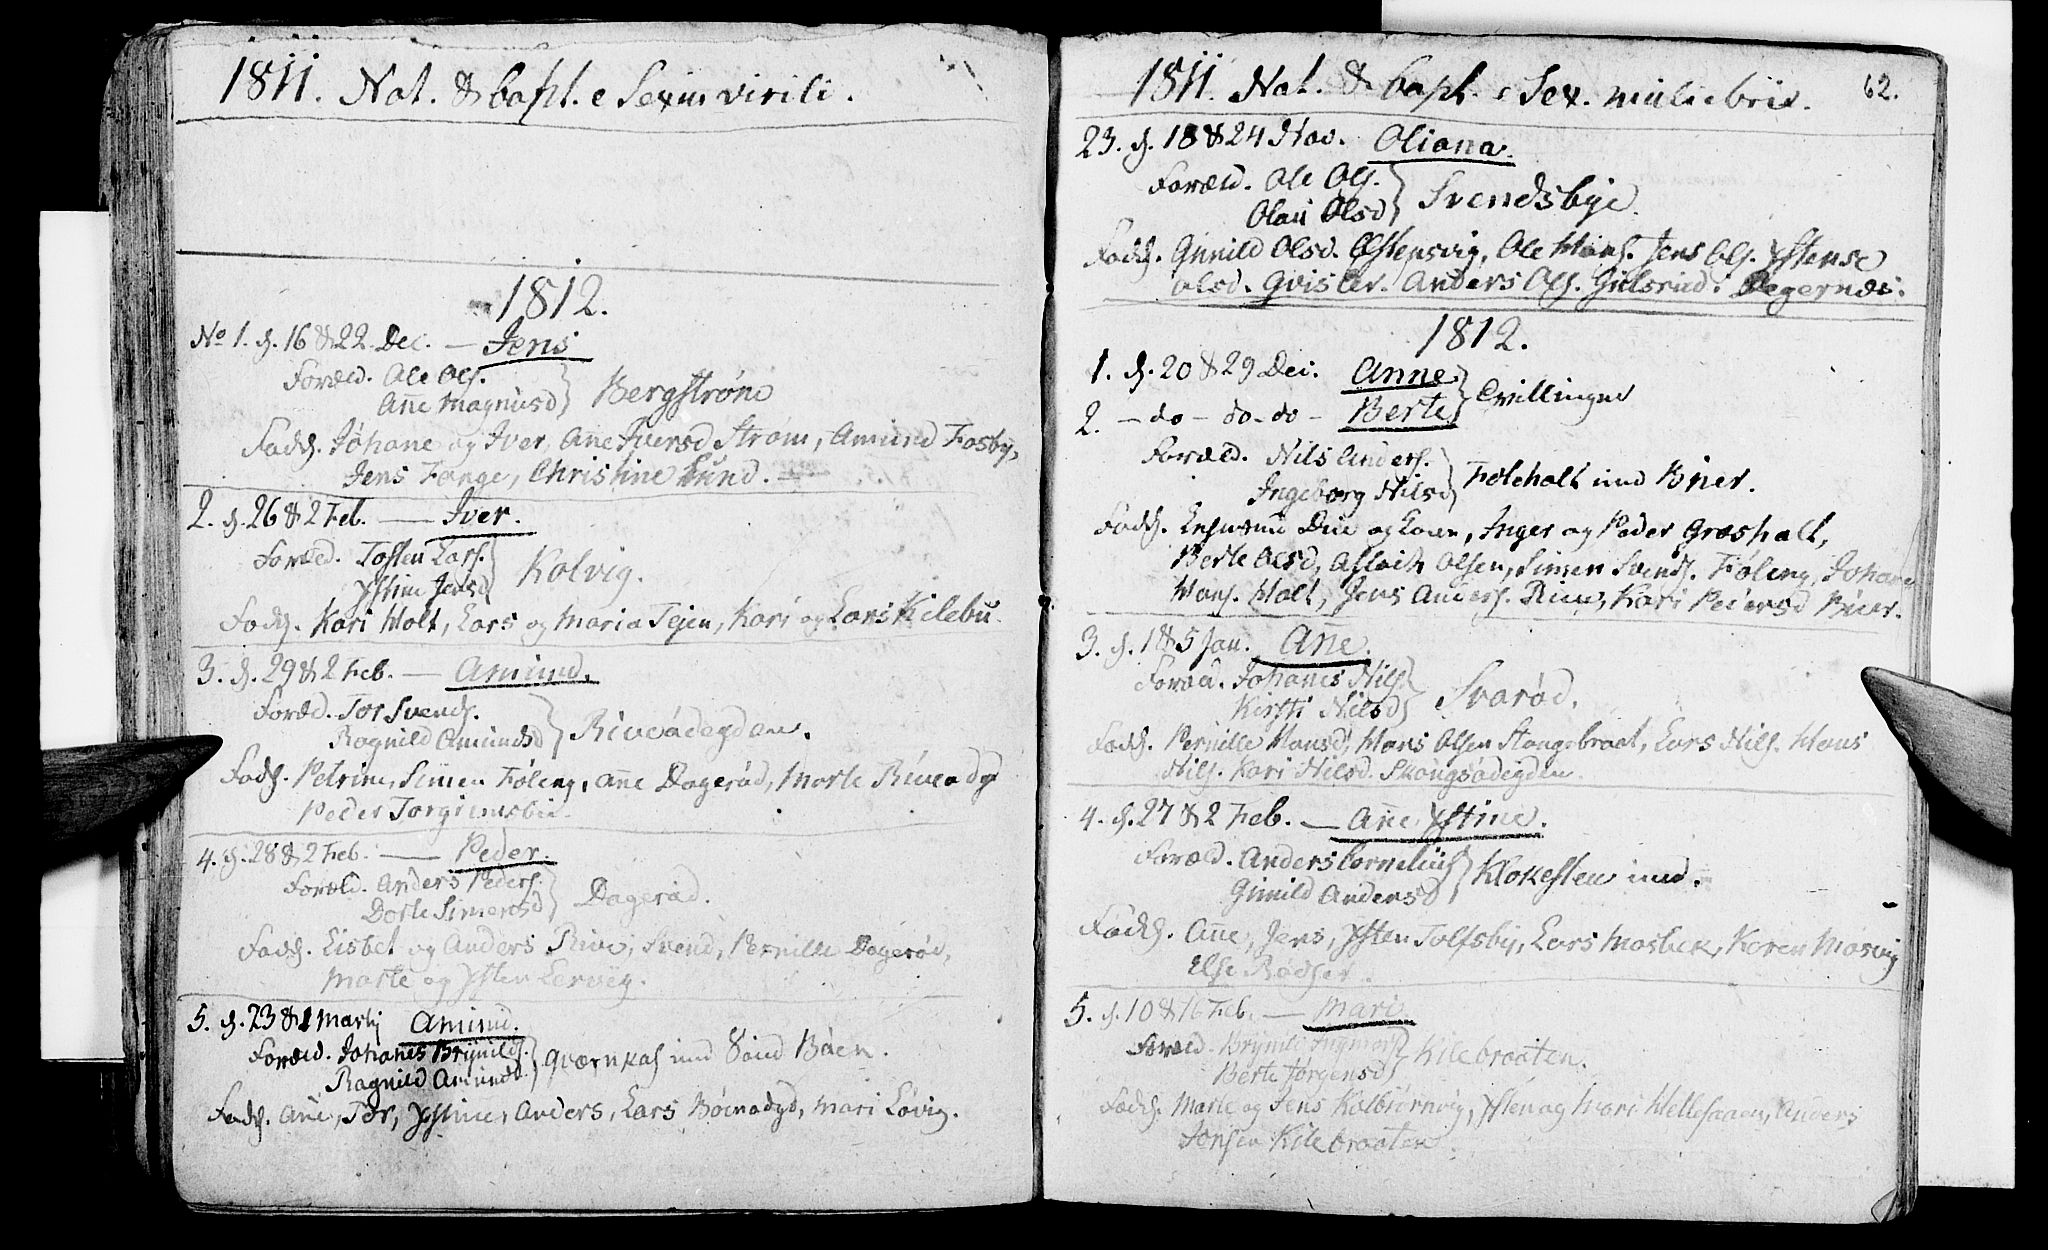 1811. Nat. & bapt. e Sexu virili.
1812.
No 1. d. 16 & 22 Dec. — Jens
Foræld. Ole Ols.
Añe Magnusd } Bergstrøm
Fadd. Johane og Iver, Añe Iversd Strøm, Amund Fosby,
Jens Fange, Christine Lund.
2. d. 26 & 2 Feb. — Iver.
Foræld. Tosten Lars.
Xstine Jensd } Kolvig.
Fadd. Kari Holt, Lars og Maria Tejen, Kari og Lars Kilebu.
3. d. 29 & 2 Feb. — Amund.
Foræld. Tor Svends.
Ragnild Amundsd } Riveødegden.
Fadd. Petrine, Simen Føleng, Añe Dagerød, Marte Riveødgd
Peder Torgrimsbu.
4. d. 28 & 2 Feb. — Peder.
Foræld. Anders Peders.
Dorte Simensd } Dagerød.
Fadd. Lisbet og Anders Rive, Svend, Pernille Dagerød,
Marte og Xsten Lervig.
5. d. 23 & 1 Martij Amund.
Foræld. Johanes Brynilds.
Ragnild Amunds. } Qværnkas und Sund Böen.
Fadd. Añe, Tor, Xstine, Anders, Lars Böenødgd, Mari Løvig.
1811. Nat. & bapt. e Sex. muliebrie. 62.
23. d. 18 & 24 Nov. Oliana.
Foræld. Ole Ols.
Olau Olsd } Svendsbye.
Fadd. Gunild Olsd. Ostensvig, Ole Hans. Jens Ols. Xstense
Olsd. Qvisler. Anders Ols. Gulsrud. Degernæs.
1812.
1. d. 20 & 29 Dec. Anne
2. — do — do — do — Berte } Tvillinger
Foræld. Nils Anders.
Ingeborg Nilsd } Foleholt und Buer.
Fadd. Due og Inger og Peder Græsholt,
Berte Olsd, Aslach Olsen, Simen Svends. Føleng, Johan
Hans. Holt, Jens Anders. Rive, Kari Pedersd Buer.
3. d. 1 & 5 Jan. Añe.
Foræld. Johanes Nils.
Kirsti Nilsd } Svarød.
Fadd. Pernille Hansd, Hans Olsen Stangebraat, Lars Nils. Hans
Nils. Kari Nilsd. Skougsødegden.
4. d. 27 & 2 Feb. — Añe Xstine.
Foræld. Anders Cornelius
Gunild Andersd } Klokesten und.
Fadd. Añe, Jens, Xsten Tolfsby, Lars Mosbek, Karen Mösvig
Else Rødser.
5. d. 10 & 16 Feb. — Mari
Foræld. Brynild Ingmars.
Berte Jørgensd } Kilebraaten.
Fadd. Marte og Jens Kolbiörnvig, Xsten og Mari Hellesaaen, Anders
Jonsen Kilebraaten.